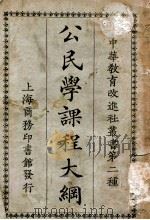 中華教育改進社叢書第二種
公民學課程大綱
上海商務印書館發行